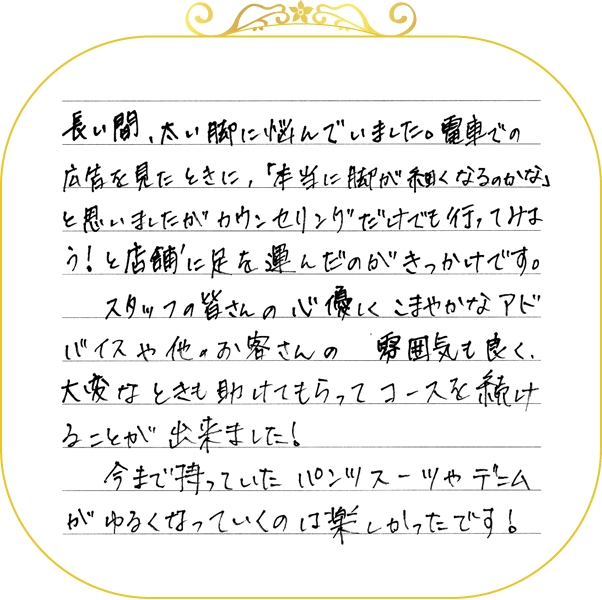 長い間、太い脚に悩んでいました。電車での
広告を見たときに、「本当に脚が細くなるのかな」
と思いましたがカウンセリングだけでも行ってみよ
う!と店舗に足を運んだのがきっかけです。
スタッフの皆さんの心優しくこまやかなアド
バイスや他のお客さんの雰囲気も良く、
大変なときも助けてもらってコースを続け
ることが出来ました!
今まで持っていたパンツスーツやデニム
がゆるくなっていくのは楽しかったです!